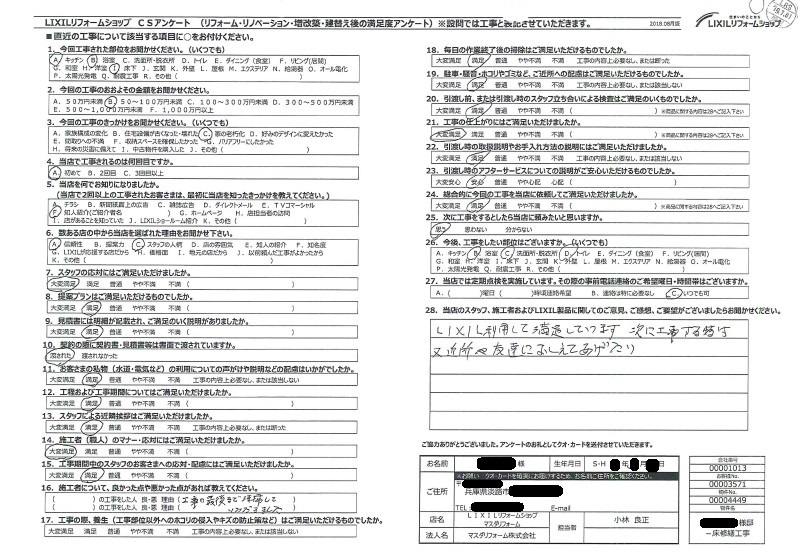 LIXILリフォームショップ CSアンケート （リフォーム・リノベーション・増改築・建替え後の満足度アンケート）※設問では工事と表記させていただきます。
2018.08月版
住まいのことなら
LIXILリフォームショップ
■直近の工事について該当する項目に○をお付けください。
1. 今回工事された部位をお聞かせください。（いくつでも）
A. キッチン B. 浴室 C. 洗面所・脱衣所 D. トイレ E. ダイニング（食堂） F. リビング(居間)
G. 和室 H. 洋室 I. 床下 J. 玄関 K. 外壁 L. 屋根 M. エクステリア N. 給湯器 O. オール電化
P. 太陽光発電 Q. 耐震工事 R. その他（ ）
2. 今回の工事のおおよその金額をお聞かせください。
A. 50万円未満 B. 50～100万円未満 C. 100～300万円未満 D. 300～500万円未満
E. 500～1,000万円未満 F. 1,000万円以上
3. 今回の工事のきっかけをお聞かせください。（いくつでも）
A. 家族構成の変化 B. 住宅設備が古くなった・壊れた C. 家の老朽化 D. 好みのデザインに変えたかった
E. 間取りへの不満 F. 収納スペースを確保したかった G. バリアフリーにしたかった
H. 将来の災害に備えて I. 中古物件を購入した J. その他（ ）
4. 当店で工事されるのは何回目ですか。
A. 初めて B. 2回目 C. 3回目以上
5. 当店を何でお知りになりましたか。
（当店で2回以上の工事されたお客さまは、最初に当店を知ったきっかけを教えてください。）
A. チラシ B. 新聞購買上の広告 C. 雑誌広告 D. ダイレクトメール E. TVコマーシャル
F. 知人紹介(ご紹介者名 ) G. ホームページ H. 店担当者の訪問
I. 店があることを知っていた J. LIXILショールーム紹介 K. その他（ ）
6. 数ある店の中から当店を選ばれた理由をお聞かせ下さい。
A. 信頼性 B. 提案力 C. スタッフの人柄 D. 店の雰囲気 E. 知人の紹介 F. 知名度
G. LIXILが応援する店だから H. 価格面 I. 地元の店だから J. 以前頼んだ工事がよかったから
K. その他（ ）
7. スタッフの応対にはご満足いただけましたか。
大変満足 満足 普通 やや不満 不満（ ）
8. 提案プランはご満足いただけるものでしたか。
大変満足 満足 普通 やや不満 不満（ ）
9. 見積書には明細が記載され、ご満足のいく説明がありましたか。
大変満足 満足 普通 やや不満 不満（ ）
10. 契約の際に契約書・見積書等は書面で渡されていますか。
渡された 渡されなかった
11. お客さまの私物（水道・電気など）の利用についての声がけや説明などの配慮はいかがでしたか。
大変満足 満足 普通 やや不満 不満 工事の内容上必要なし、または該当しない
12. 工程および工事期間についてはご満足いただけましたか。
大変満足 満足 普通 やや不満 不満（ ）
13. スタッフによる近隣挨拶はご満足いただけましたか。
大変満足 満足 普通 やや不満 不満 工事の内容上必要なし、または断った
14. 施工者（職人）のマナー・応対にはご満足いただけましたか。
大変満足 満足 普通 やや不満 不満（ ）
15. 工事期間中のスタッフのお客さまへの応対・配慮にはご満足いただけましたか。
大変満足 満足 普通 やや不満 不満（ ）
16. 施工者について、良かった点や悪かった点があれば教えてください。
（ ）の工事をした人 良・悪 理由（工事の最後まで
（ ）の工事をした人 良・悪 理由（
17. 工事の際、養生（工事部位以外へのホコリの侵入やキズの防止策など）はご満足いただけるものでしたか。
大変満足 満足 普通 やや不満 不満 工事の内容上必要なし、または該当しない
18. 毎日の作業終了後の掃除はご満足いただけるものでしたか。
大変満足 満足 普通 やや不満 不満 工事の内容上必要なし、または断った
19. 駐車・騒音・ホコリやゴミなど、ご近所への配慮はご満足いただけましたか。
大変満足 満足 普通 やや不満 不満 工事の内容上必要なし、または該当しない
20. 引渡し前、または引渡し時のスタッフ立ち合いによる検査はご満足のいくものでしたか。
大変満足 満足 普通 やや不満 不満（ ）※商品に関する内容は28へご記入下さい
21. 工事の仕上がりにはご満足いただけましたか。
大変満足 満足 普通 やや不満 不満（ ）※商品に関する内容は28へご記入下さい
22. 引渡し時の取扱説明やお手入れ方法の説明にはご満足いただけましたか。
大変満足 満足 普通 やや不満 不満 工事の内容上必要なし、または該当しない
23. 引渡し時のアフターサービスについての説明がご安心いただけるものでしたか。
大変安心 安心 普通 やや心配 心配（ ）
24. 総合的に今回の工事を当店に依頼してご満足いただけましたか。
大変満足 満足 普通 やや不満 不満（ ）※商品に関する内容は28へご記入下さい
25. 次に工事をするとしたら当店に頼みたいと思いますか。
思う 思わない 分からない
26. 今後、工事をしたい部位はございますか。（いくつでも）
A. キッチン B. 浴室 C. 洗面所・脱衣所 D. トイレ E. ダイニング（食堂） F. リビング(居間)
G. 和室 H. 洋室 I. 床下 J. 玄関 K. 外壁 L. 屋根 M. エクステリア N. 給湯器 O. オール電化
P. 太陽光発電 Q. 耐震工事 R. その他（ ）
27. 当店では定期点検を実施しています。その際の事前電話連絡のご希望曜日・時間帯はございますか。
A. （ ）曜日（ ）時頃連絡希望 B. 連絡は特に必要なし C. いつでも可
28. 当店のスタッフ、施工者およびLIXIL製品に関してのご意見、ご感想、ご要望がございましたらお聞かせください。
LIXIL利用して満足しています 次に工事する時も
又近所や友達におしえてあげたい
ご協力ありがとうございました。アンケートのお礼としてクオ・カードを送付させていただきます。
お名前 様 生年月日 S・H 年 月 日
※お願い クオ・カードを確実にお届けするため、お名前ご住所をご確認ください。
ご住所 〒
兵庫県淡路市
TEL E-mail
店名 LIXILリフォームショップ マスダリフォーム 担当者 小林 良正
法人名 マスダリフォーム株式会社
会社番号
00001013
お客様No.
00003571
物件No.
00004449
様邸
－床修繕工事